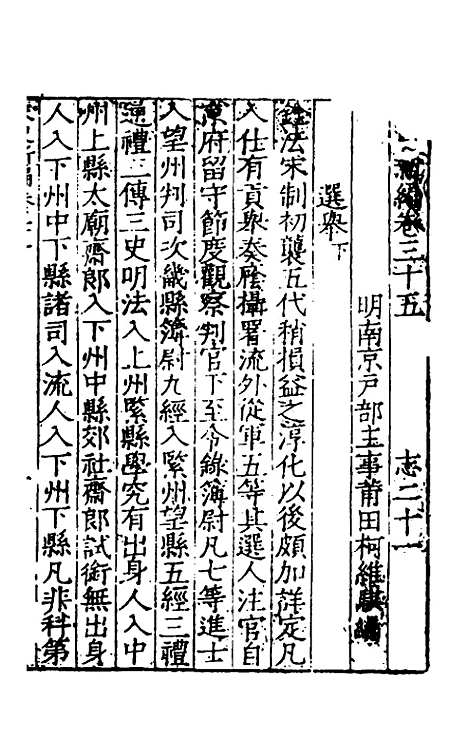 新編卷三十五 志二十一
明南京戶部主事莆田柯維騏編
選舉下
銓法宋制初襲五代稍損益之淳化以後頗加詳定凡
入仕有貢舉奏廕攝署流外從軍五等其選人注官自
京府留守節度觀察判官下至令錄簿尉凡七等進士
入望州判司次畿縣簿尉九經入緊州望縣五經三禮
通禮三傳三史明法入上州緊縣學究有出身人入中
州上縣太廟齋郎入下州中縣郊社齋郎試銜無出身
人入下州中下縣諸司入流人入下州下縣凡非科第